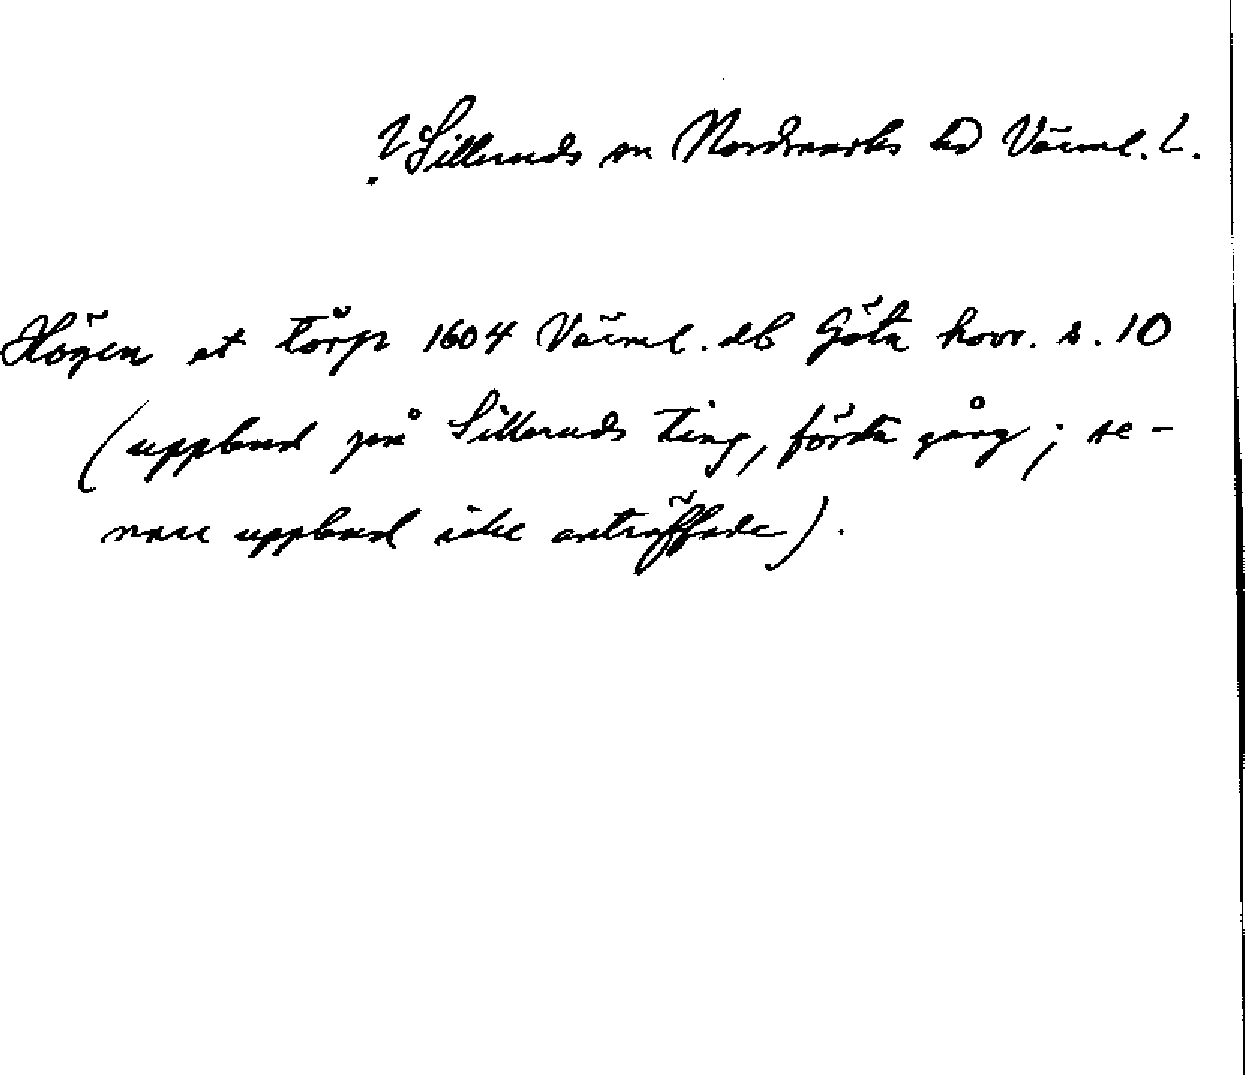 ? Sillbuds sn Nordmarks hd Värml. L.
Högen et törp 1604 Värml. db Göta hovr. s. 10
(uppbud på Silleruds Ting, första gång; se-
nare uppbud icke anträffade).